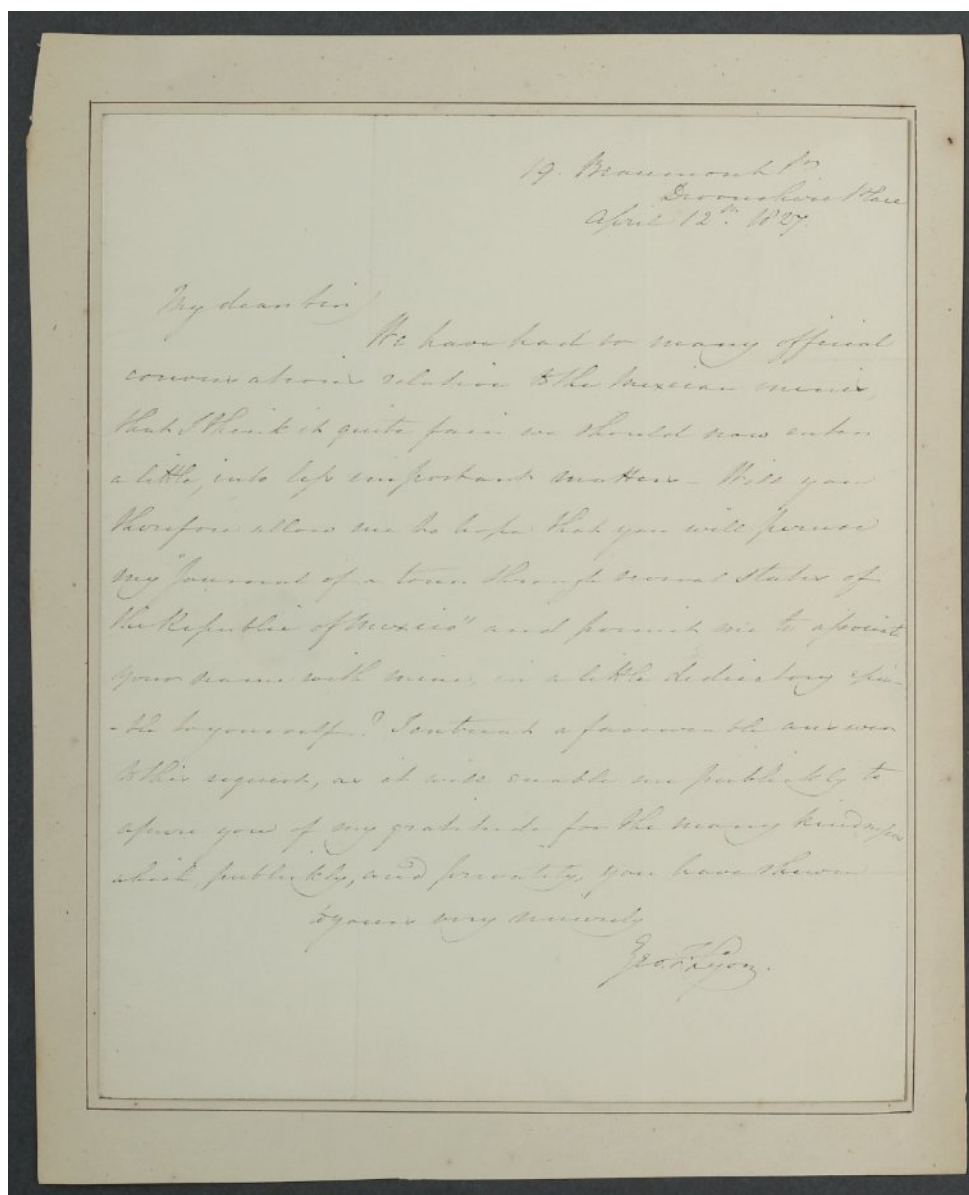 19. Beaumont St
Devonshire Place
April 12th. 1827.
My dear Sir,
We have had so many official
conversations relative to the Mexican mines,
that I think it quite fair we should now enter
a little, into less important matters - Will you
therefore allow me to hope that you will peruse
my "Journal of a tour through several states of
the Republic of Mexico" and permit me to
your name with mine, in a little dedicatory epis-
-tle to yourself? I entreat a favourable answer
to this request, as it will enable me publickly to
assure you of my gratitude for the many kindnesses
which, publickly, and privately, you have shewn
to yours very sincerely
Geo. F. Lyon.